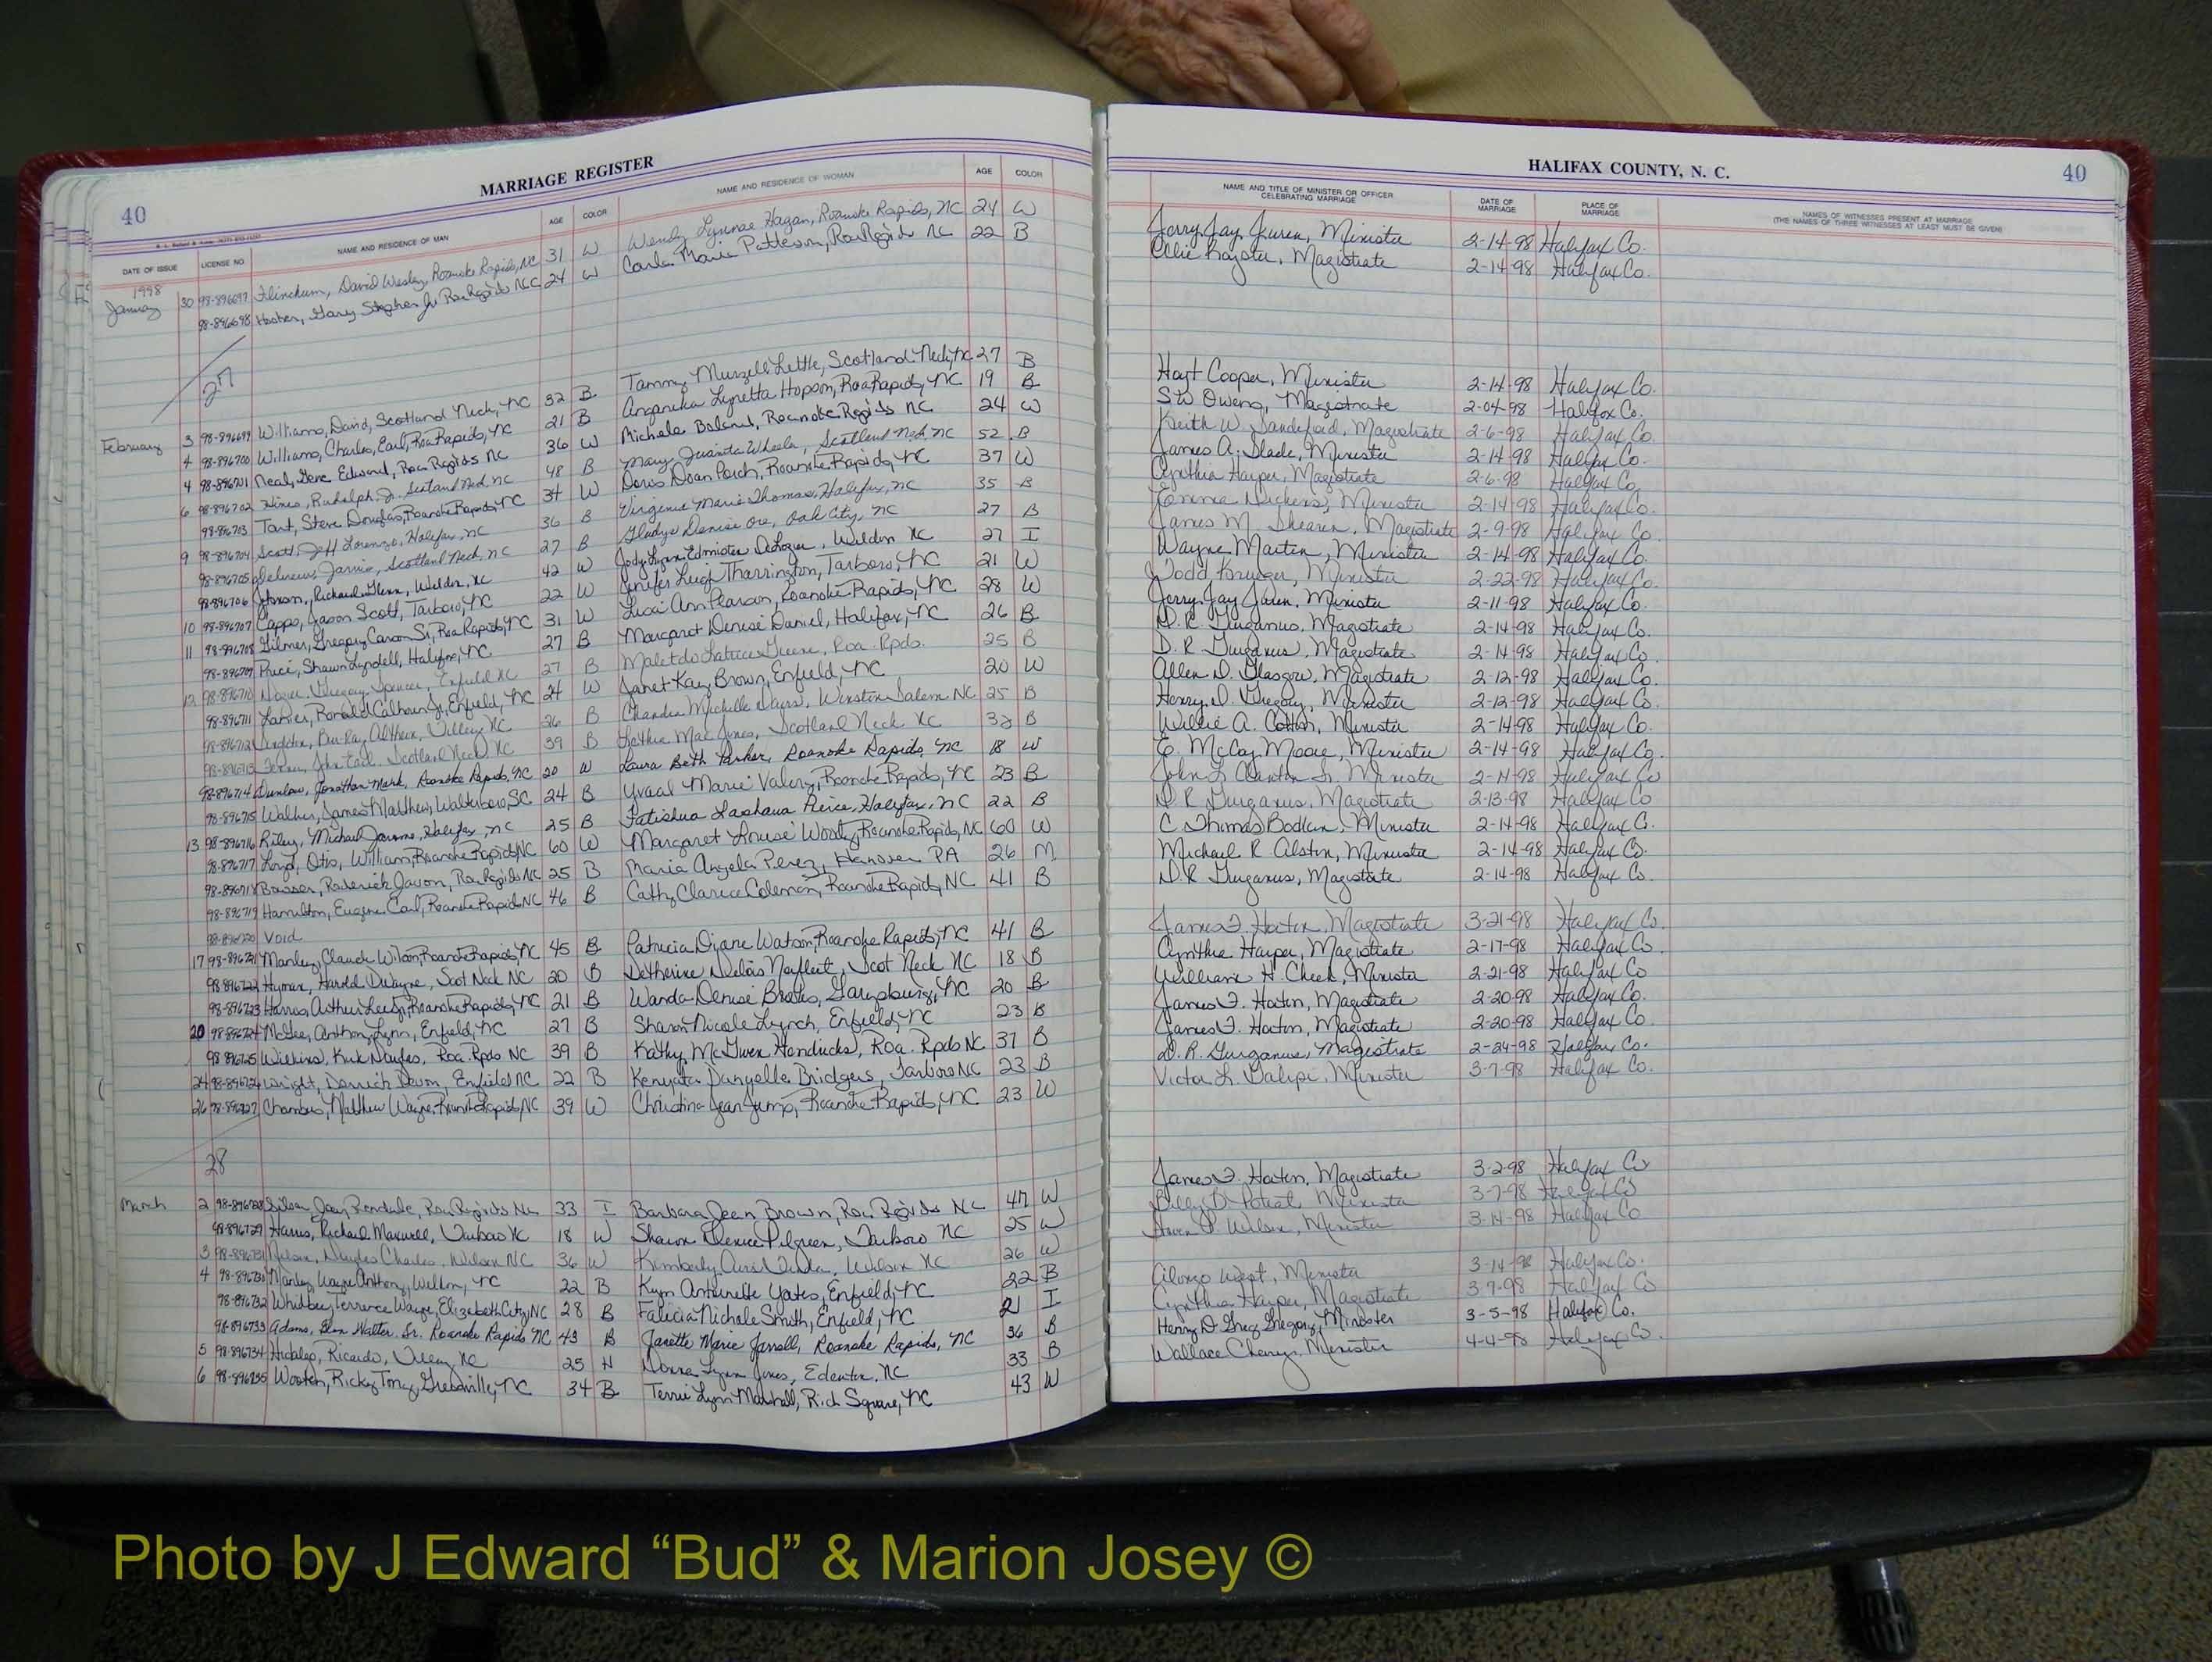 MARRIAGE REGISTER
40
DATE OF ISSUE LICENSE NO. NAME AND RESIDENCE OF MAN AGE COLOR NAME AND RESIDENCE OF WOMAN AGE COLOR
1998
January 30 98-896697 Flinchum, David Wesley, Roanoke Rapids, NC 31 W Wendy Lynnae Hagan, Roanoke Rapids, NC 24 W
98-896698 Gary Stephen Jr. Roa Rapids NC 24 W Carla Maria Patterson, Roa Rapids NC 22 B
27
February 3 98-896699 Williams, David, Scotland Neck, NC 32 B Tammy Murzell Little, Scotland Neck, NC 27 B
4 98-896700 Williams, Charles, Earl, Roa Rapids, NC 21 B Lynetta Hopson, Roa Rapids, NC 19 B
4 98-896701 Neal, Gene Edward, Roa Rapids NC 36 W Michele Boland, Roanoke Rapids NC 24 W
6 98-896702 Hines, Rudolph Jr. Scotland Neck, NC 48 B Mary Juanita Wheeler, Scotland Neck, NC 52 B
98-896703 Tart, Steve Douglas, Roanoke Rapids, NC 34 W Doris Doan Porch, Roanoke Rapids, NC 37 W
9 98-896704 Scott, Jeff Lorenzo, Halifax, NC 36 B Virginia Marie Thomas, Halifax, NC 35 B
98-896705 Jarvis, Scotland Neck, NC 27 B Gladys Denise Ore, Oak City, NC 27 B
98-896706 Richard Glenn, Weldon, NC 42 W Jody Lynn Edmister DeLozier, Weldon NC 27 I
10 98-896707 Capps, Jason Scott, Tarboro, NC 22 W Jenifer Leigh Tharrington, Tarboro, NC 21 W
11 98-896708 Gilmer, Gregory Carson Sr, Roa Rapids, NC 31 W Ann Pearson, Roanoke Rapids, NC 28 W
98-896709 Price, Shawn Lyndell, Halifax, NC 27 B Margaret Denise Daniel, Halifax, NC 26 B
12 98-896710 Gregory Spencer, Enfield NC 27 B Latrice Greene, Roa. Rpds. 25 B
98-896711 Lanier, Ronald Calhoun Jr, Enfield, NC 24 W Janet Kay Brown, Enfield, NC 20 W
98-896712 26 B Chandra Michelle Winston Salem NC 25 B
98-896713 Scotland Neck NC 39 B Mae Jones, Scotland Neck NC 32 B
98-896714 Dunlow, Jonathan Mark, Roanoke Rapids, NC 20 W Laura Beth Parker, Roanoke Rapids, NC 18 W
98-896715 Walker, James Matthew, Walterboro, SC 24 B Marie Valery, Roanoke Rapids, NC 23 B
13 98-896716 Riley, Michael Jerome, Halifax, NC 25 B Latishua Lashaua Pierce, Halifax, NC 22 B
98-896717 Loyd, Otis, William, Roanoke Rapids, NC 60 W Margaret Louise Woody, Roanoke Rapids, NC 60 W
98-896718 Bowser, Roderick Javon, Roa Rapids NC 25 B Maria Angela Perez, Hanover PA 26 M
98-896719 Hamilton, Eugene Earl, Roanoke Rapids NC 46 B Cathy Clarice Coleman, Roanoke Rapids, NC 41 B
98-896720 Void
17 98-896721 Manley, Claude Wilson, Roanoke Rapids, NC 45 B Patricia Diane Watson, Roanoke Rapids, NC 41 B
98-896722 Hyman, Harold Dwayne, Scot Neck NC 20 B Delois Norfleet, Scot Neck NC 18 B
98-896723 Harris Arthur Lee Jr, Roanoke Rapids, NC 21 B Wanda Denise Brooks, Garysburg, NC 20 B
20 98-896724 McGee, Anthony Lynn, Enfield, NC 27 B Sharon Nicole Lynch, Enfield, NC 23 B
98-896725 Wilkins, Kirk Roa. Rpds NC 39 B Kathy McGwen Hendricks, Roa. Rpds NC 37 B
24 98-896726 Wright, Derrick Devon, Enfield NC 22 B Kenyatta Danyelle Bridgers, Tarboro NC 23 B
26 98-896727 Chambers, Matthew Wayne, Roanoke Rapids, NC 39 W Christina Jean Jump, Roanoke Rapids, NC 23 W
28
March 2 98-896728 Roa Rapids NC 33 I Barbara Jean Brown, Roa Rapids NC 47 W
98-896729 Harris, Richard Maxwell, Tarboro NC 18 W Sharon Denice Pilgreen, Tarboro NC 25 W
3 98-896731 Charles, Wilson NC 36 W Kimberly Wilson NC 26 W
4 98-896730 Manley, Wayne Anthony, Weldon, NC 22 B Kym Antoinette Yates, Enfield, NC 22 B
98-896732 Whidbee, Terrence Wayne, Elizabeth City, NC 28 B Falicia Nichole Smith, Enfield, NC 21 I
98-896733 Adams, Walter Sr. Roanoke Rapids NC 43 B Janette Marie Jarrell, Roanoke Rapids, NC 36 B
5 98-896734 Hidalgo, Ricardo, NC 25 H Donna Lynn Jones, Edenton, NC 33 B
6 98-896735 Wooten, Ricky Tony, NC 34 B Terrie Lynn Marshall, Rich Square, NC 43 W
HALIFAX COUNTY, N. C. 40
NAME AND TITLE OF MINISTER OR OFFICER CELEBRATING MARRIAGE DATE OF MARRIAGE PLACE OF MARRIAGE NAMES OF WITNESSES PRESENT AT MARRIAGE (THE NAMES OF THREE WITNESSES AT LEAST MUST BE GIVEN)
Jerry Jay Minister 2-14-98 Halifax Co.
Magistrate 2-14-98 Halifax Co.
Hoyt Cooper, Minister 2-14-98 Halifax Co.
SW Owens, Magistrate 2-04-98 Halifax Co.
Keith W. Sandeford, Magistrate 2-6-98 Halifax Co.
James A. Slade, Minister 2-14-98 Halifax Co.
Cynthia Harper, Magistrate 2-6-98 Halifax Co.
Emma Dickens, Minister 2-14-98 Halifax Co.
James M. Shearin, Magistrate 2-9-98 Halifax Co.
Wayne Martin, Minister 2-14-98 Halifax Co.
Todd Krueger, Minister 2-22-98 Halifax Co.
Jerry Jay Minister 2-11-98 Halifax Co.
D.R. Gurganus, Magistrate 2-14-98 Halifax Co.
D. R. Gurganus, Magistrate 2-14-98 Halifax Co.
Allen D. Glasgow, Magistrate 2-12-98 Halifax Co.
Henry D. Gregory, Minister 2-12-98 Halifax Co.
Willie A. Cotton, Minister 2-14-98 Halifax Co.
E. McCoy Moore, Minister 2-14-98 Halifax Co.
John L. Minister 2-14-98 Halifax Co
D. R. Gurganus, Magistrate 2-13-98 Halifax Co
C Thomas Bodkin, Minister 2-14-98 Halifax Co.
Michael R. Alston, Minister 2-14-98 Halifax Co.
D. R Gurganus, Magistrate 2-14-98 Halifax Co.
James F. Horton, Magistrate 3-21-98 Halifax Co.
Cynthia Harper, Magistrate 2-17-98 Halifax Co
William H. Cheek, Minister 2-21-98 Halifax Co
James F. Horton, Magistrate 2-20-98 Halifax Co.
James F. Horton, Magistrate 2-20-98 Halifax Co
D. R. Gurganus, Magistrate 2-24-98 Halifax Co.
Victor L. Galipi, Minister 3-7-98 Halifax Co.
James F. Horton, Magistrate 3-2-98 Halifax Co
Billy D. Poteat Minister 3-7-98 Halifax Co
Wilson, Minister 3-14-98 Halifax Co
Alonzo West, Minister 3-14-98 Halifax Co.
Cynthia Harper, Magistrate 3-7-98 Halifax Co
Henry D. Greg Gregory, Minister 3-5-98 Halifax Co.
Wallace Cherry, Minister 4-4-98 Halifax Co.
Photo by J Edward “Bud” & Marion Josey ©